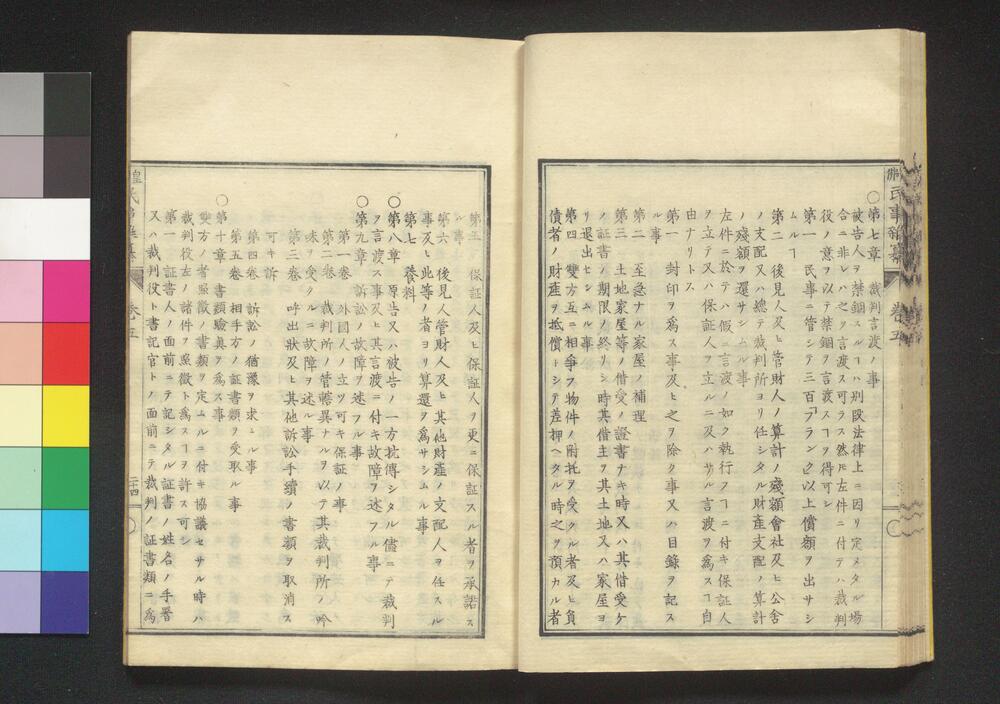 〇第七章 裁判言渡ノ事
被告人ヲ禁錮スルヿハ別段法律上ニ因リ定メタル場
合ニ非レハ之ヲ言渡ス可ラス然𪜈左件ニ付テハ裁判
役ノ意ヲ以テ禁錮ヲ言渡スヿヲ得可シ
第一 民事ニ管シテ三百「フランク」以上償額ヲ出サシ
ムルヿ
第二 後見人及ヒ管財人ノ算計ノ殘額會社及ヒ公舎
ノ支配又ハ總テ裁判所ヨリ任シタル財産支配ノ算計
ノ殘額ヲ還サシムル事
左件ニ於テハ假ニ言渡ノ如ク執行フヿニ付キ保証人
ヲ立テ又ハ保証人ヲ立ルニ及ハサル言渡ヲ爲スヿ自
由ナリトス
第一 封印ヲ爲ス事及ヒ之ヲ除ク事又ハ目録ヲ記ス
ル事
第二 至急ナル家屋ノ補理
第三 土地家屋等ノ借受ノ證書ナキ時又ハ其借受ケ
ノ証書ノ期限ノ終リシ時其借主ヲ其土地又ハ家屋ヨ
リ退出ヒシムル事
第四 雙方互ニ相爭フ物件ノ附托ヲ受クル者及ヒ負
債者ノ財産ヲ抵償トシテ差押ヘタル時之ヲ預カル者
巻五
第五 保証人及ヒ保証人ヲ更ニ保証スル者ヲ承諾ス
ル事
第六 後見人管財人及ヒ其他財産ノ支配人ヲ任スル
事及ヒ此等ノ者ヨリ算還ヲ爲サシムル事
第七 養料
〇第八章 原告又ハ被告ノ一方抗傳シタル儘ニテ裁判
ヲ言渡ス事及ヒ其言渡ニ付キ故障ヲ述フル事
〇第九章 訴訟ノ故障ヲ述フル事
第一卷 外國人ノ立ツ可キ保証ノ事
第二卷 裁判所ノ管轄異ナルヲ以テ其裁判所ノ吟
味ヲ受クルニ故障ヲ述ル事
第三卷 呼出狀及ヒ其他訴訟手續ノ書類ヲ取消ス
可キ訴
第四卷 訴訟ノ猶豫ヲ求ムル事
第五卷 相手方ノ証書類ヲ受取ル事
〇第十章 書類驗真ヲ爲ス事
雙方ノ者照徵ノ書類ヲ定ムルニ付キ協議セサル時ハ
裁判役左ノ諸件ヲ照徵ト爲スヿヲ許ス可シ
第一 証書人ノ面前ニテ記シタル証書ノ姓名ノ手署
又ハ裁判役ト書記官トノ面前ニテ裁判ノ証書類ニ爲
巻五